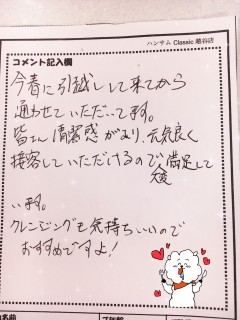 ハンサム Classic 越谷店
コメント記入欄
今春に引越しして来てから
通わせていただいてます。
皆さん清潔感があり、元気良く
接客していただけるので大変満足して
います。
クレンジングも気持ちいいので
おすすめですよ!